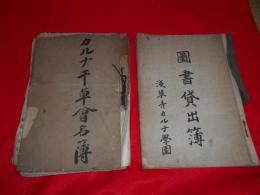 カルナ干草會名簿
圖書貸出簿
淺草寺カルナ學園